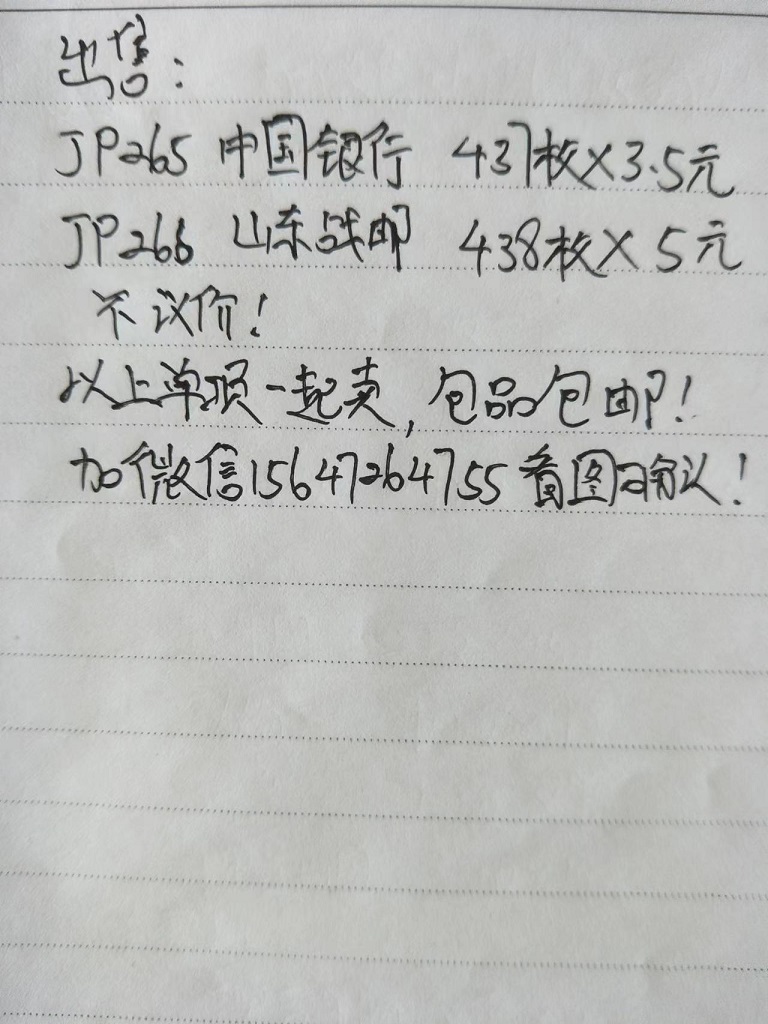 出售:
JP265 中国银行 437枚×3.5元
JP266 山东战邮 438枚×5元
不议价!
以上单项一起卖,包品包邮!
加微信15647264755看图确认!